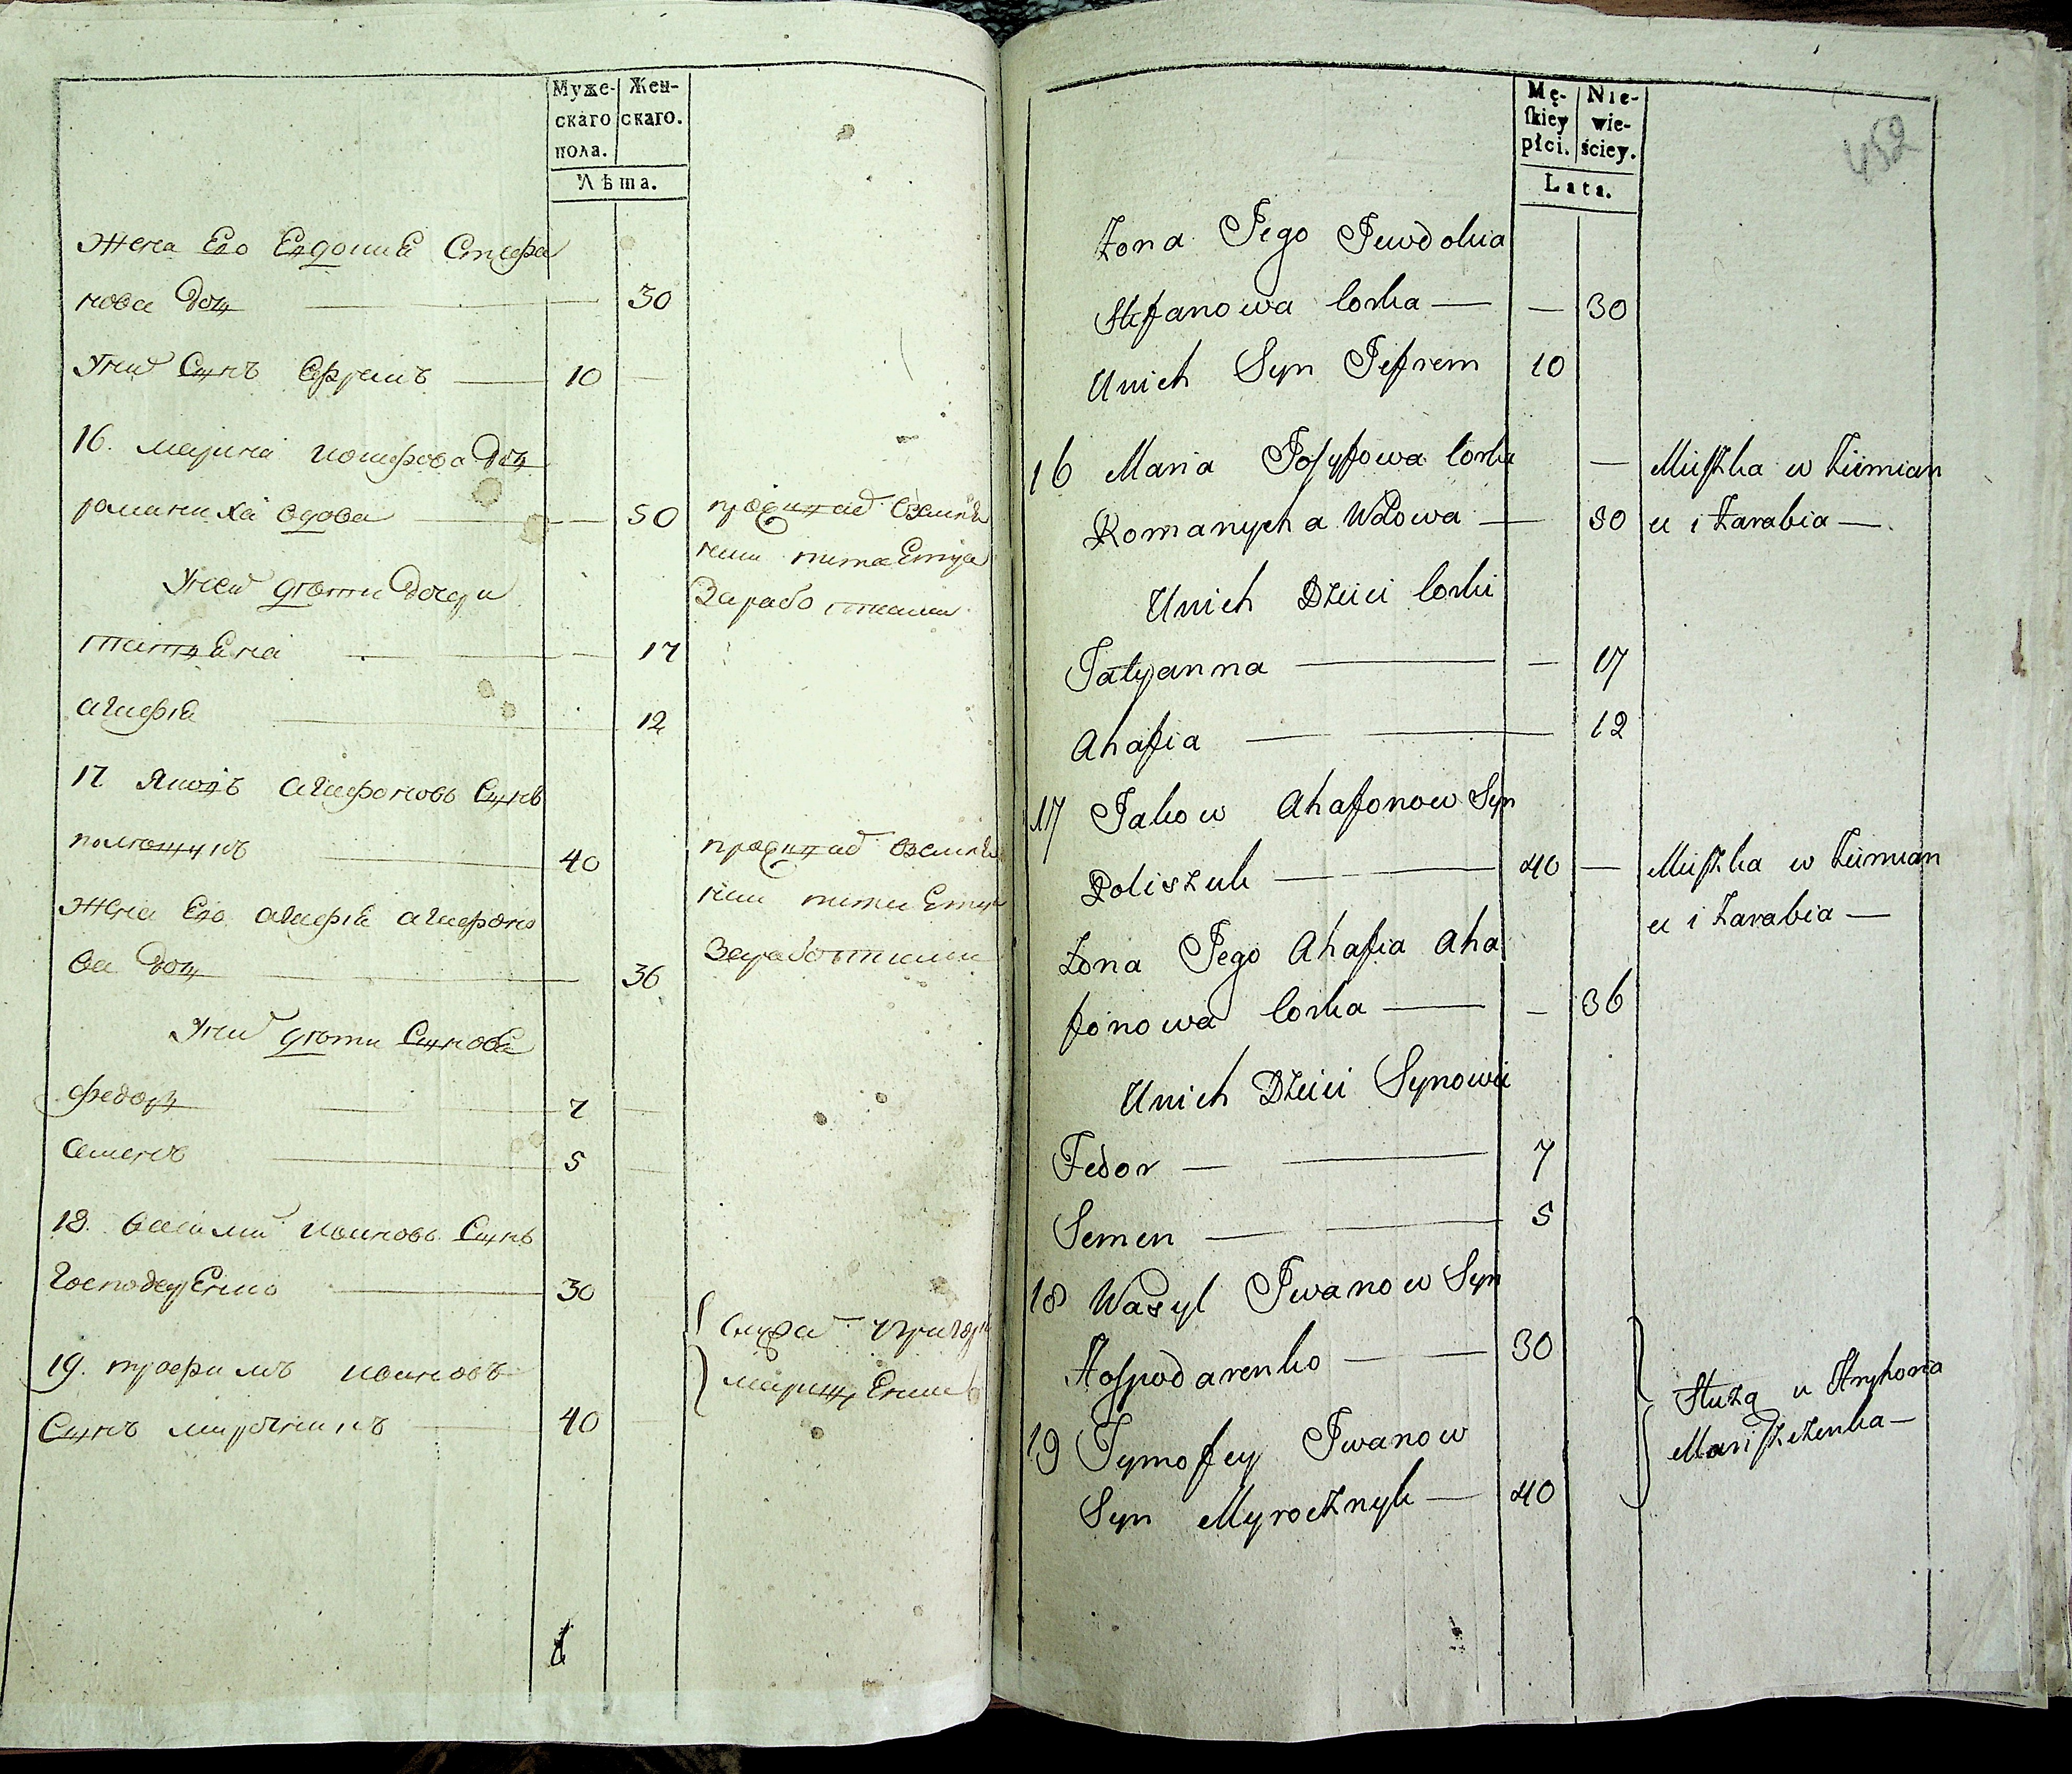 Муже-
скаго
пола.
Жен-
скаго.
Лѣта.
Жена Его Евдокиѣ Стефа
нова Доч 30
У них Сынъ Ефремъ 10
16. Мариа Иосифова Доч
романиха вдова 50
проживает взе
Заработками
У них дѣти Дочери
татиЕна 17
агафіѣ 12
17 Яковъ агафоновъ Сынъ
полищукъ 40
проживает взе
Заработками
Жена Его агафіѣ агафоно
ва Доч 36
У них дѣти Сыновѣ
Федоръ 7
Семенъ 5
18. василий ивановъ Сынъ
ГосподарЕнко 30
19. трофимъ ивановъ
Сынъ мирочникъ 40
Mę-
ſkiey
płci.
Nie-
wie-
ściey.
Lata.
452
Żona Jego Jewdokia
Stefanowa Corka — — 30
Unich Syn Jefrem 10
16 Maria Jozyfowa Corka —
Romanycha Wdowa — 50
Mieſzka w Ziemian
u i Zarabia —
Unich Dzieci Corki
Tatyanna — — 17
Ahafia — — 12
17 Jakow Ahafonow Syn
Poliszuk — 40 —
Mieſzka w Ziemian
u i Zarabia —
Żona Jego Ahafia Aha
fonowa Corka — — 36
Unich Dzieci Synowie
Fedor — — 7
Semen — — 5
18 Wasyl Iwanow Syn
Hoſpodarenko — 30
19 Tymofey Iwanow
Syn Myrocznyk — 40
Służą u Hryhora
Mariſzczenka —